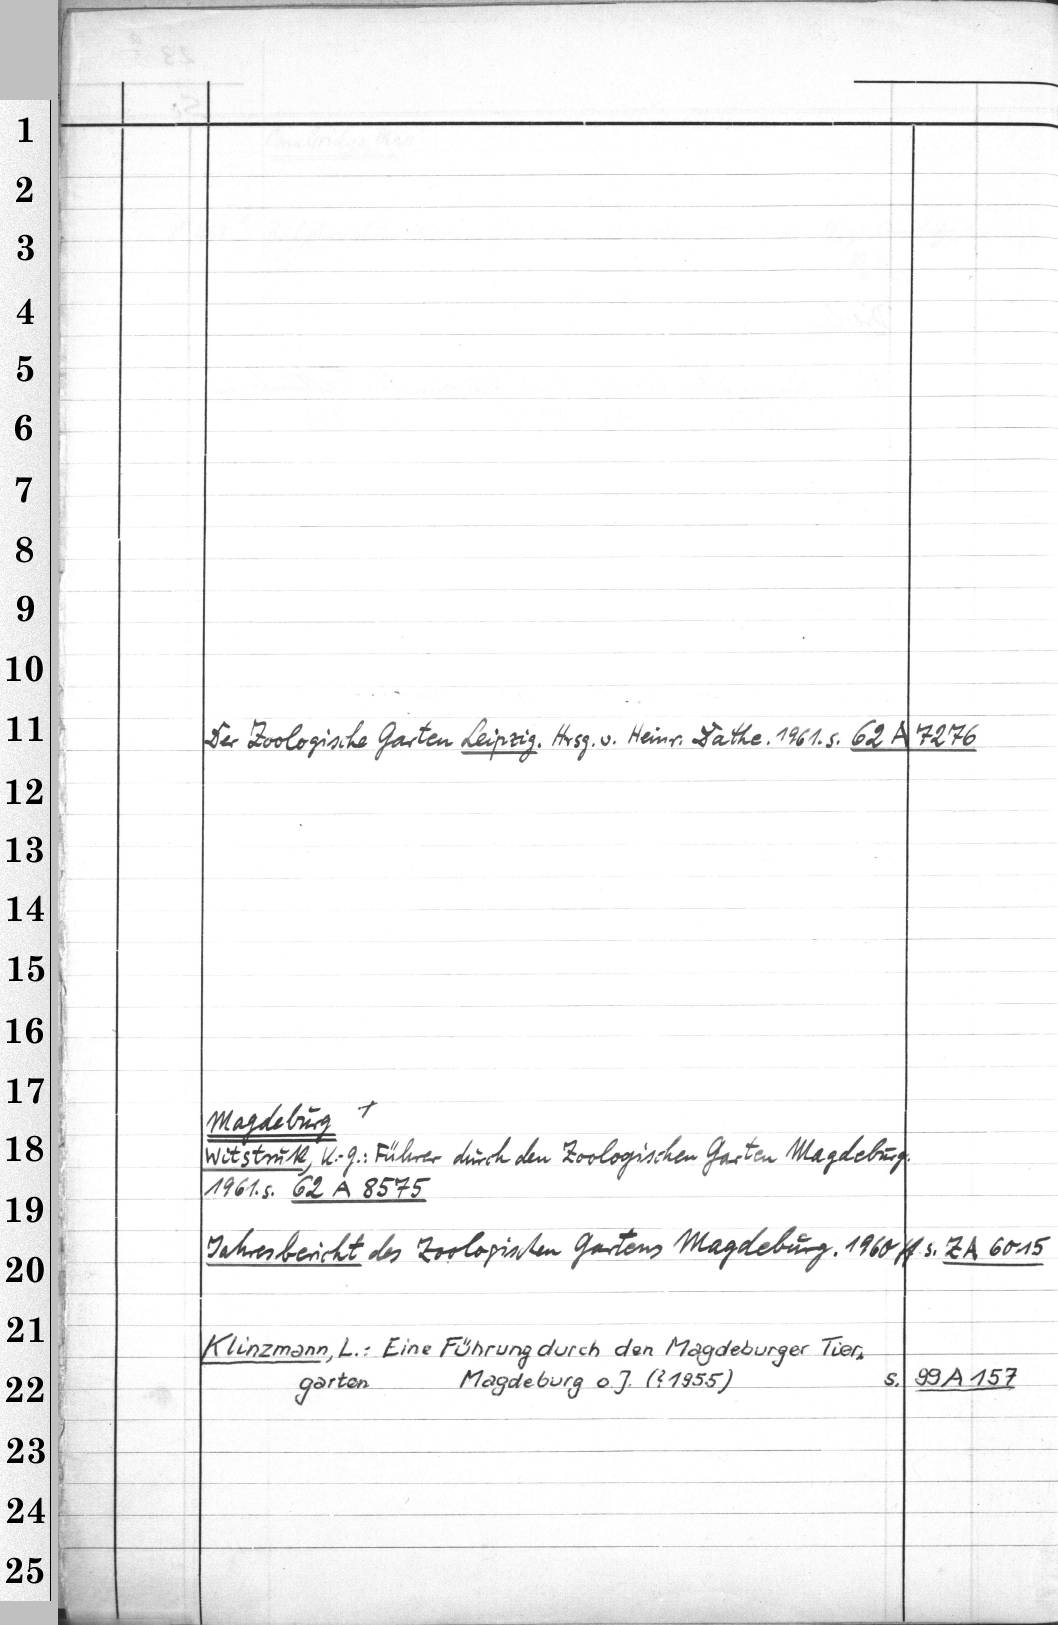 1
2
3
4
5
6
7
8
9
10
11
Der Zoologische Garten Leipzig. Hrsg. v. Heinr. Dathe. 1961. s. 62 A 7276
12
13
14
15
16
17
Magdeburg +
18
Witstruk, K.-G.: Führer durch den Zoologischen Garten Magdeburg.
1961. s. 62 A 8575
19
Jahresbericht des Zoologischen Gartens Magdeburg. 1960 ff s. ZA 6015
20
21
Klinzmann, L.: Eine Führung durch den Magdeburger Tier-
22
garten Magdeburg o. J. (? 1955) s. 99 A 157
23
24
25